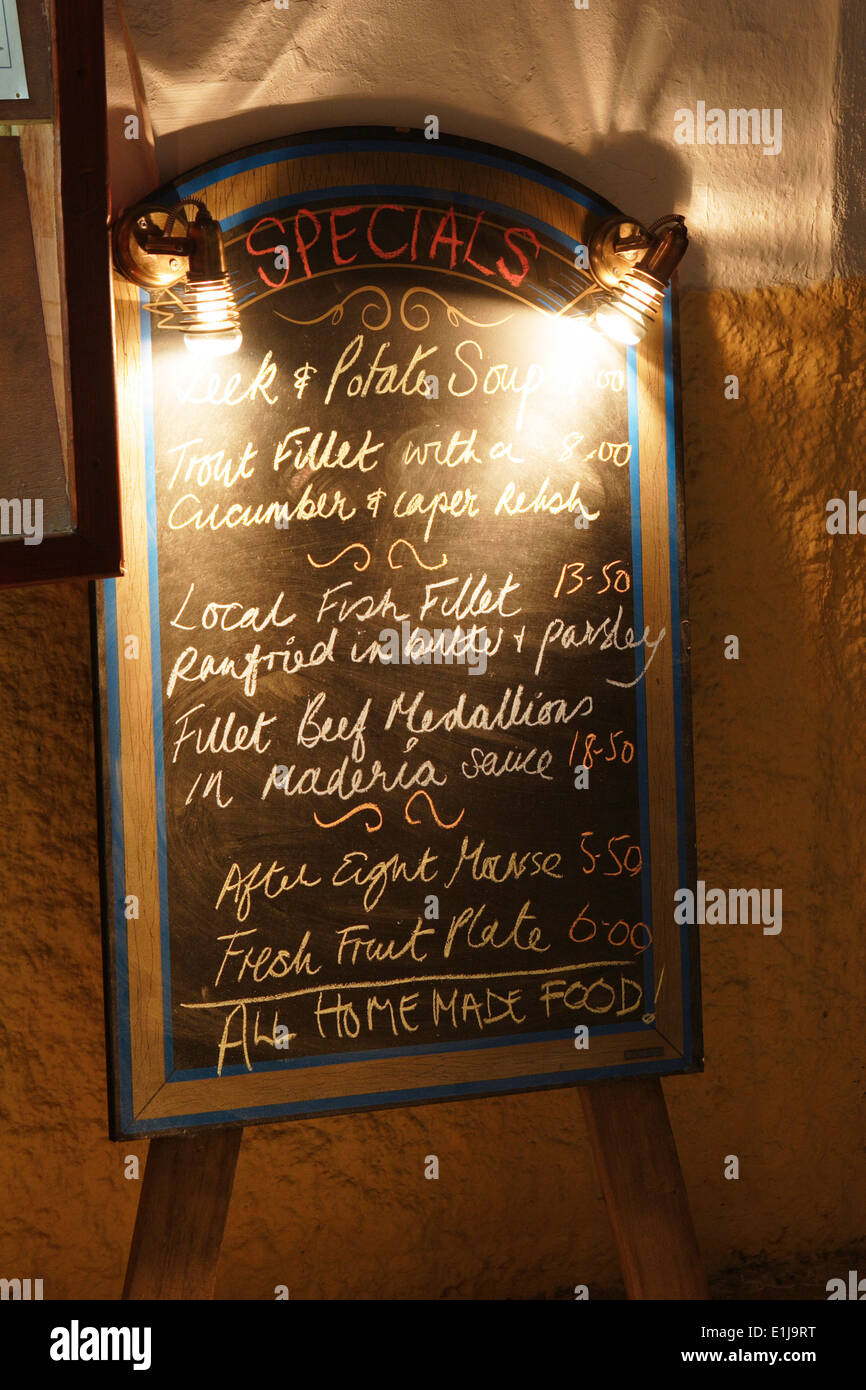 SPECIALS
Leek & Potato Soup
Trout Fillet with a 8.00
Cucumber & caper Relish
Local Fish Fillet 13-50
Panfried in butter & parsley
Fillet Beef Medallions
in Maderia sauce 18-50
After Eight Mousse 5-50
Fresh Fruit Plate 6-00
ALL HOME MADE FOOD!
alamy
Image ID: E1J9RT
www.alamy.com